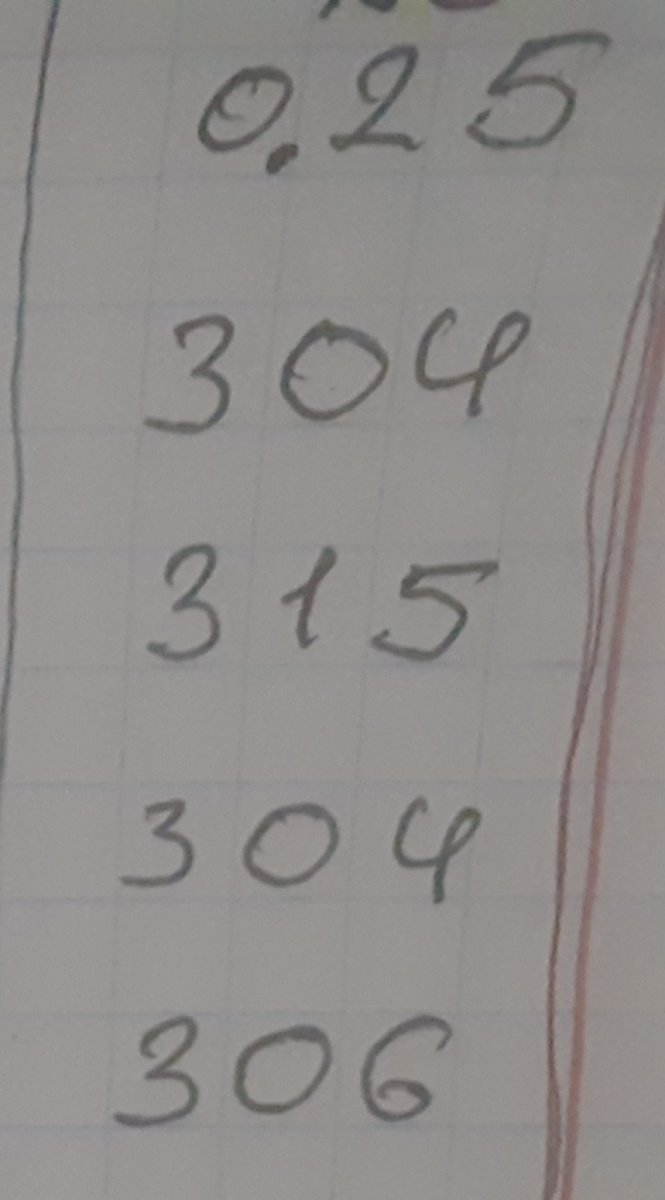 0.25
304
315
304
306